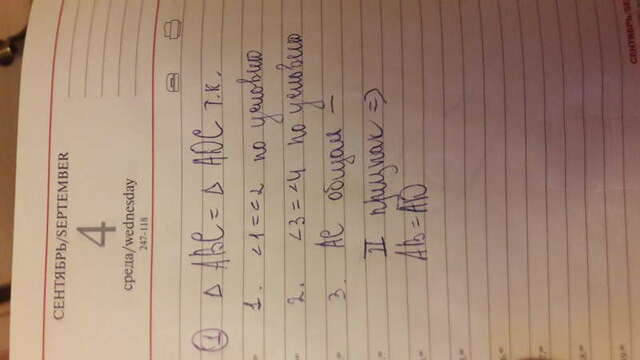 СЕНТЯБРЬ/SEPTEMBER
4
среда/wednesday
247-118
① △ ABC = △ ADC т.к.
1. ∠1=∠2 по условию
2. ∠3=∠4 по условию
3. AC общая –
II признак =>
AB=AD